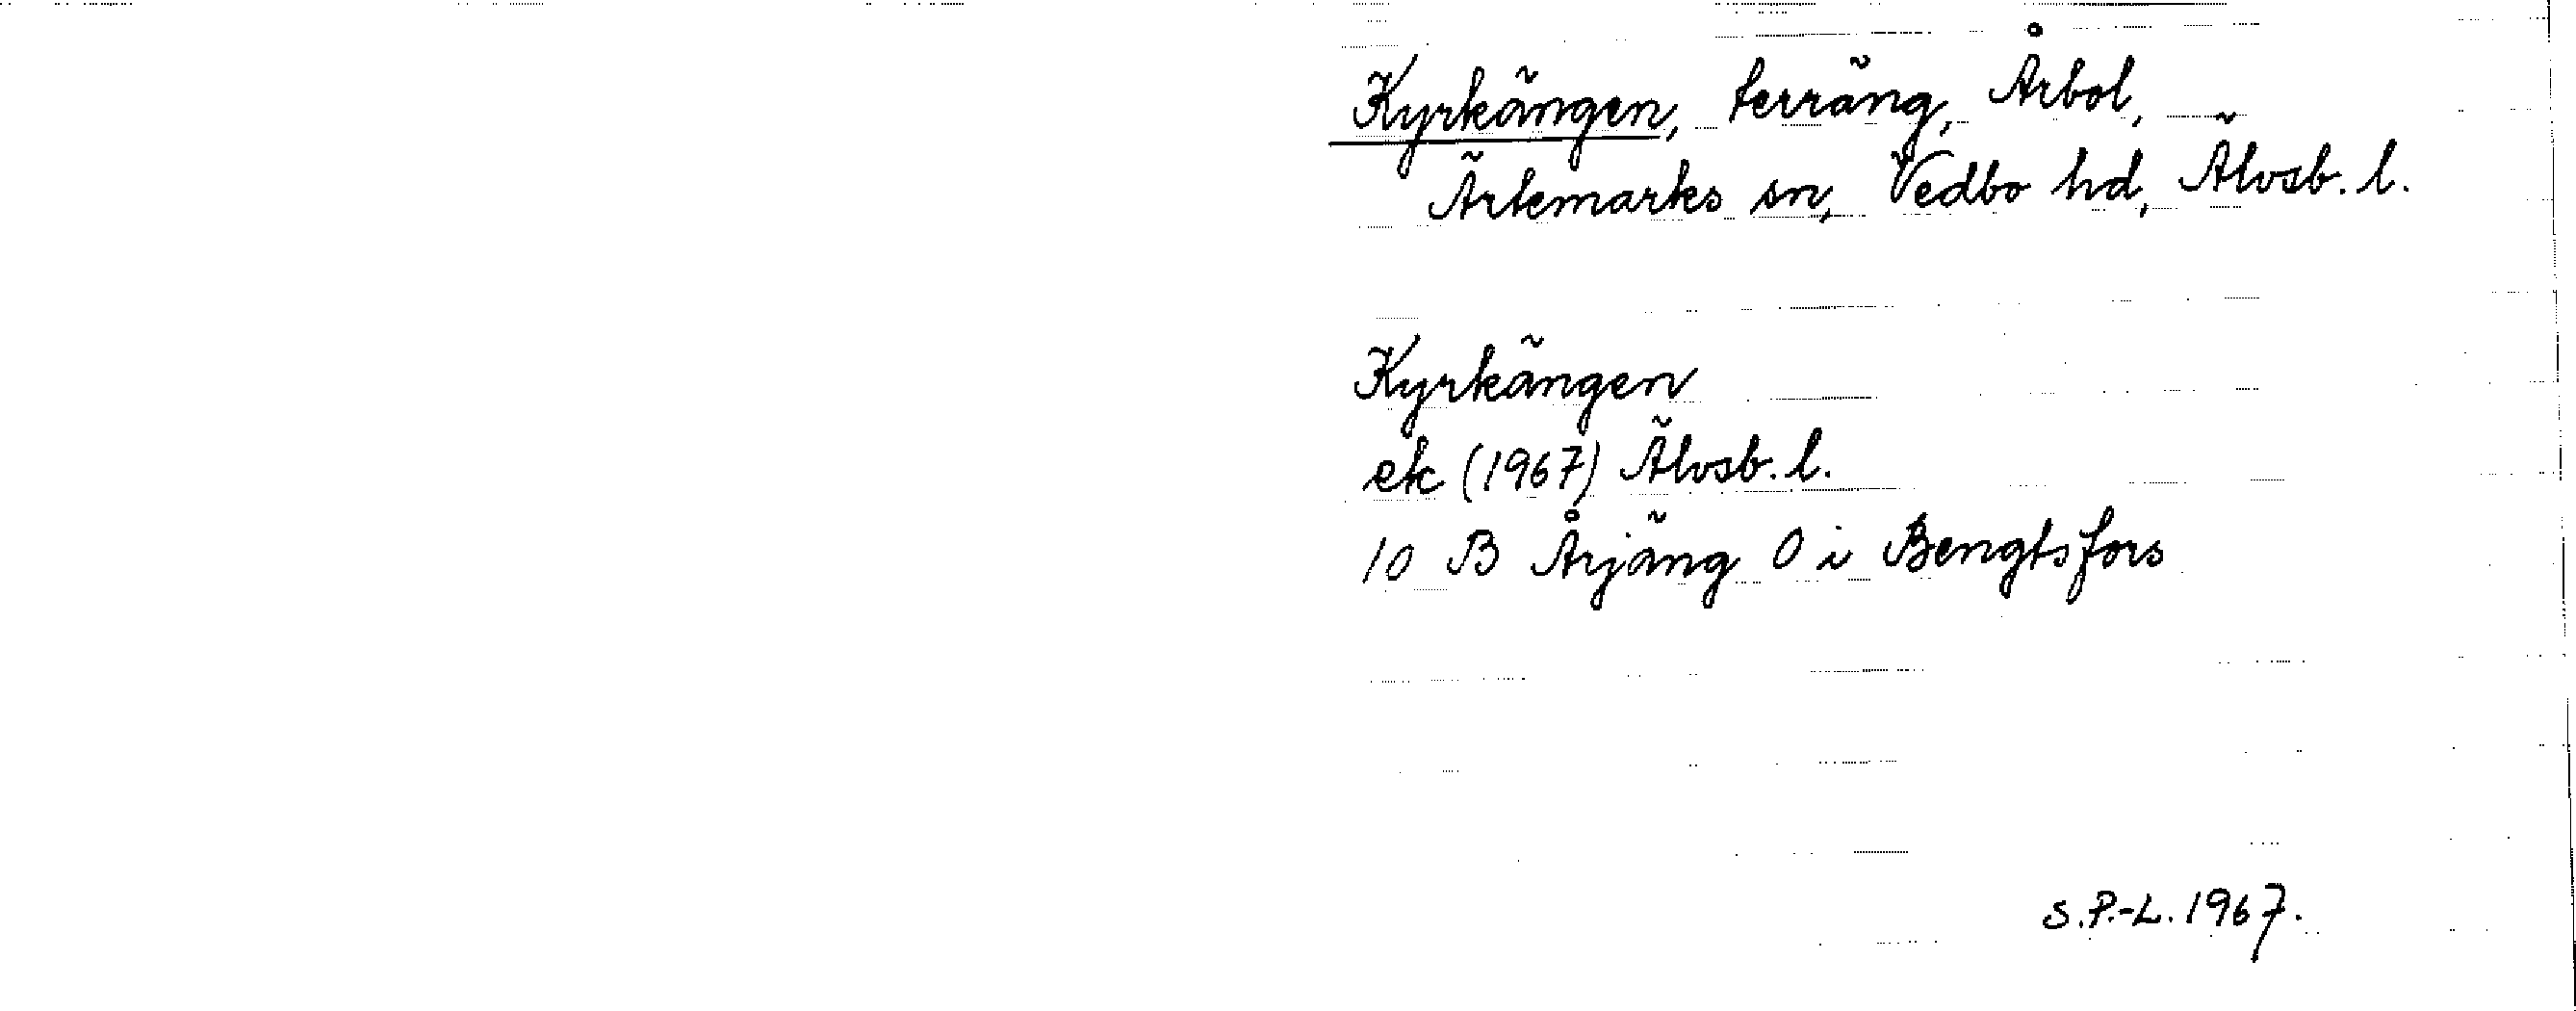 Kyrkängen, terräng, Årbol,
Ärtemarks sn, Vedbo hd, Älvsb. l.
Kyrkängen
ek (1967) Älvsb. l.
10 B Årjäng 0 i Bengtsfors
S.P.-L. 1967.